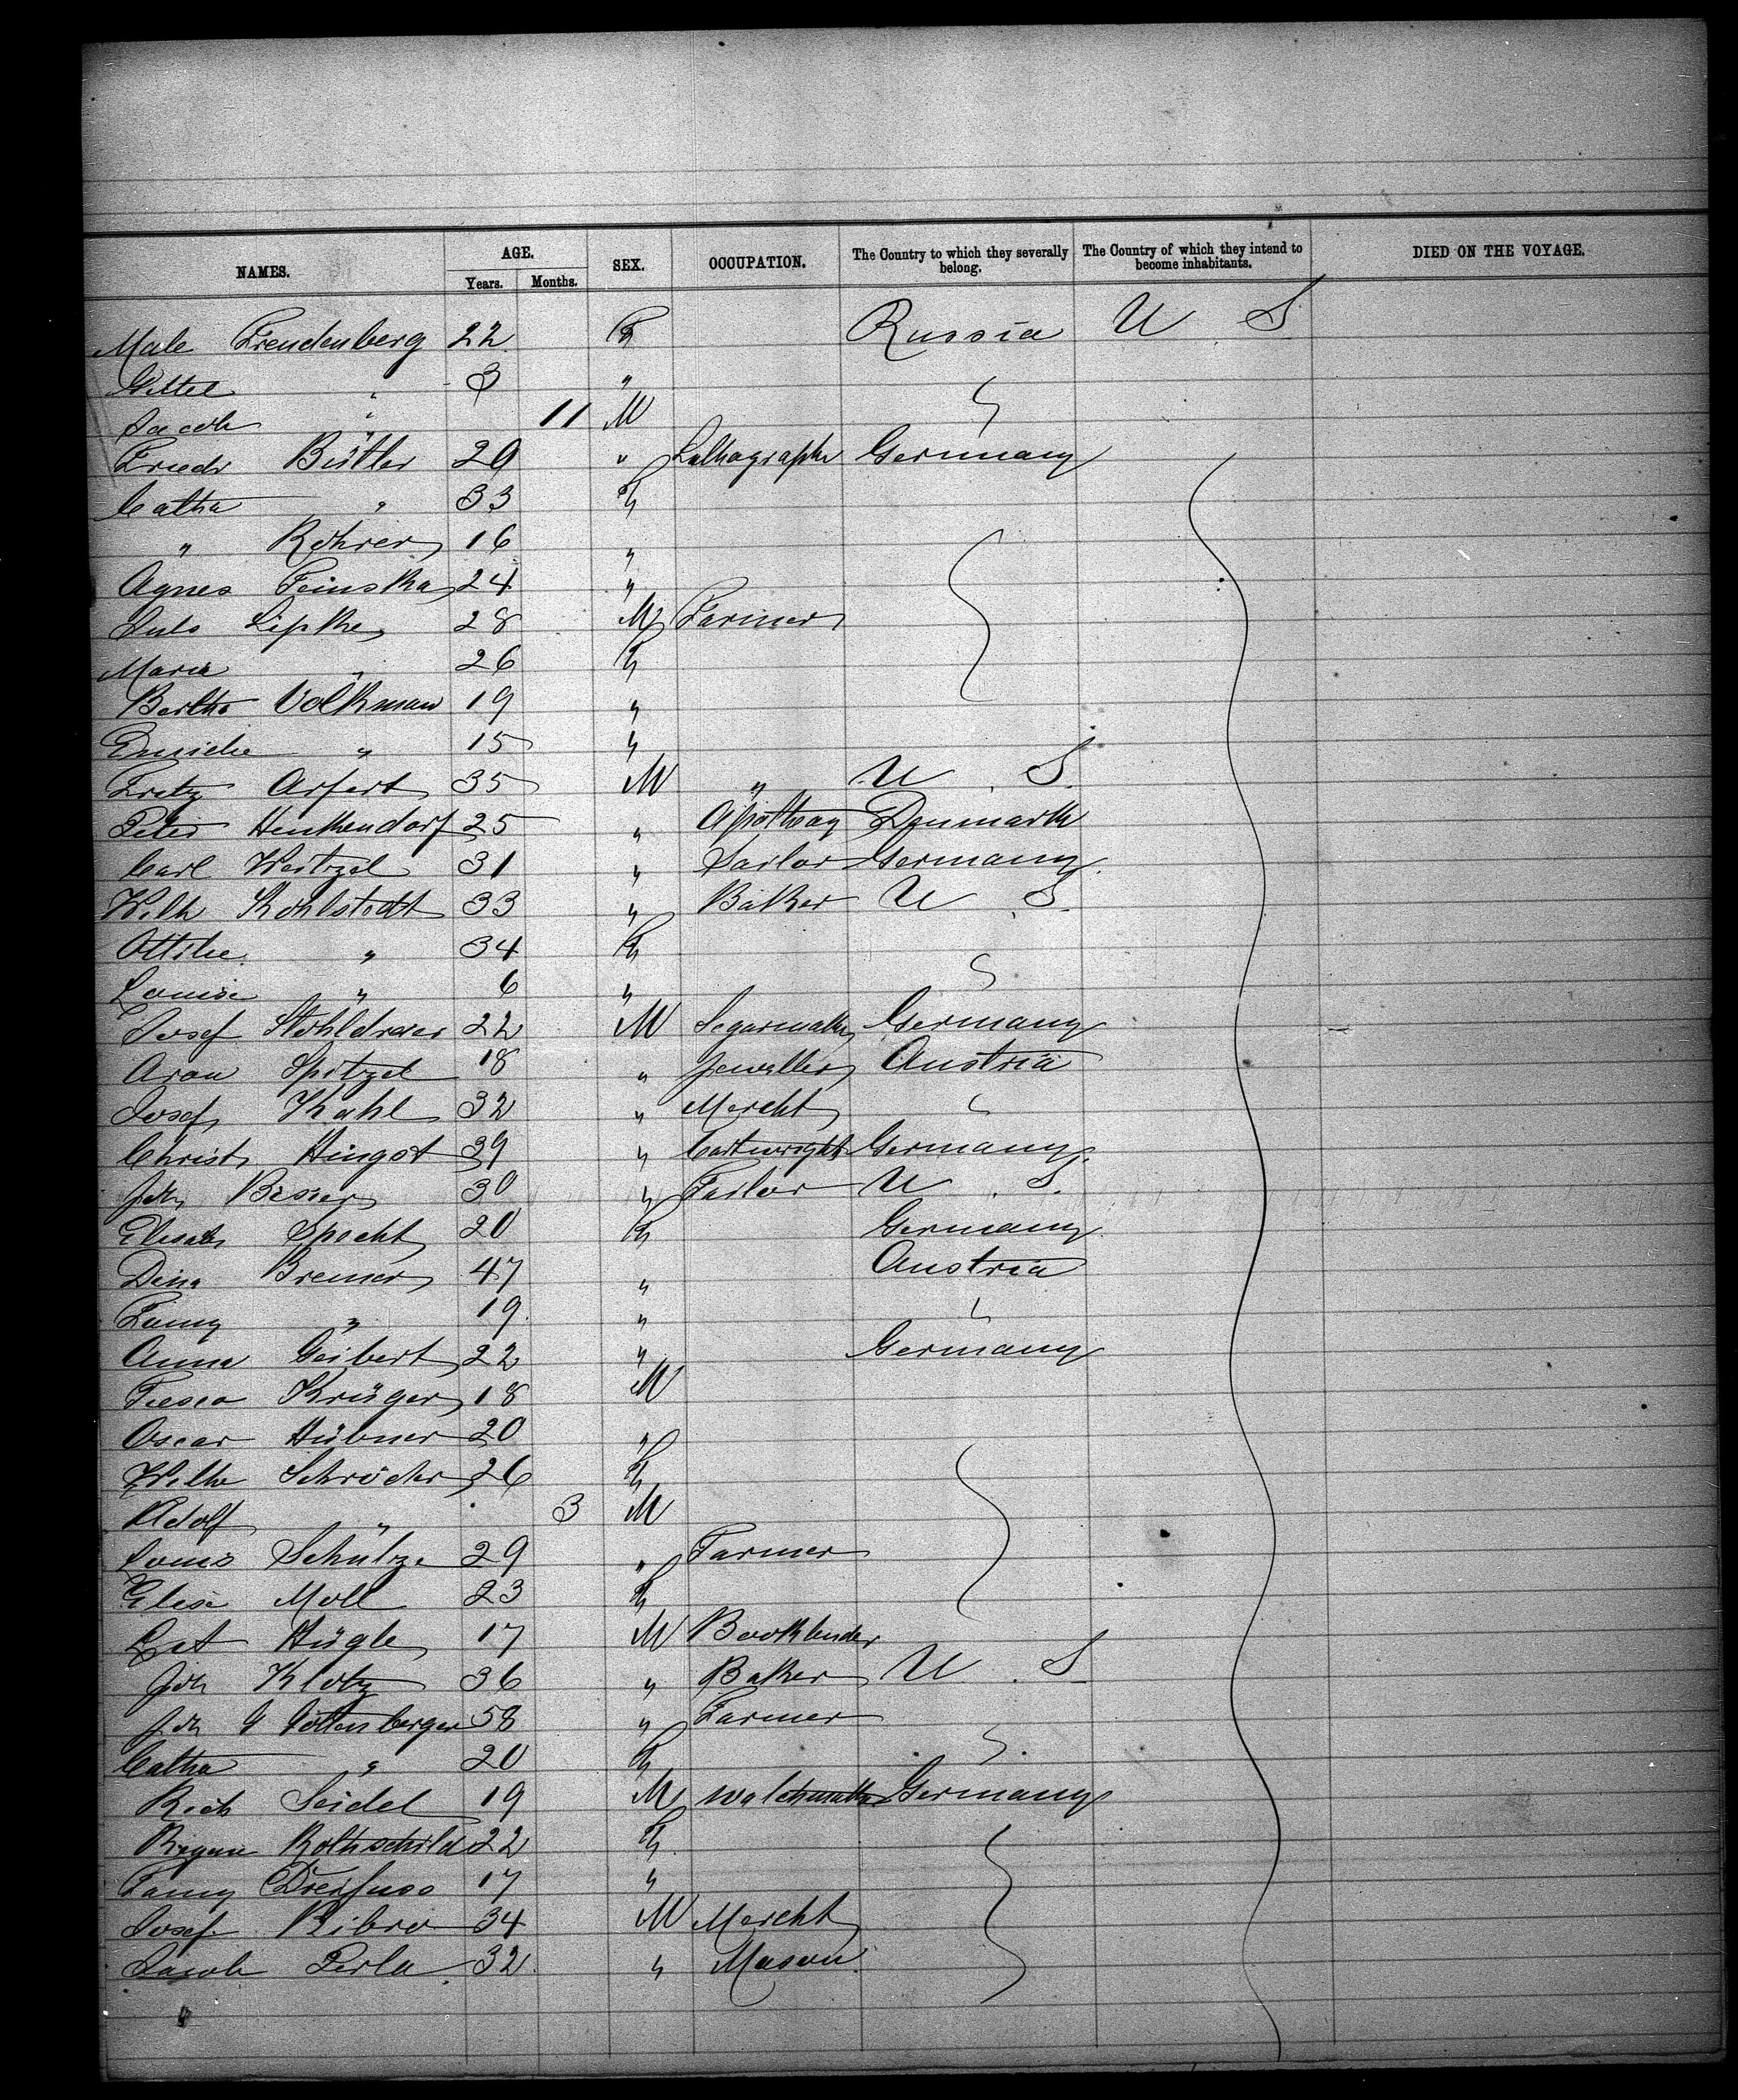 NAMES. AGE. Years. Months. SEX. OCCUPATION. The Country to which they severally belong. The Country of which they intend to become inhabitants. DIED ON THE VOYAGE.
Male Freudenberg 22 F Russia U S
Gittel " 3 "
Jacob " 11 M
Friedr Bütler 29 " Lithographr Germany
Catha " 33 F
" Rohrer 16 "
Agnes Feinska 24 "
Juls Lipke 28 M Farmer
Maria " 26 F
Bertha Volkman 19 "
Emilie " 15 "
Fritz Arfert 35 M " U. S.
Peter Henkendorf 25 " Apothecay Denmark
Carl Weitzel 31 " Sailor Germany
Wilh Kohlstedt 33 " Baker U. S.
Ottilie " 34 F
Louise " 6 "
Josef Stohldreier 22 M Segarmakr Germany
Aron Spitzel 18 " Jeweller Austria
Josef Kahl 32 " Mercht "
Christ Hingst 39 " Cartwright Germany
Joh 30 " Tailor U. S.
Elisab Specht 20 F Germany
Dina Bremer 47 " Austria
Fanny " 19 " "
Anna Geibert 22 " Germany
Krüger 18 M
Oscar Hübner 20 "
Wilhe Schröder 26 F
Adolf " 3 M
Louis Schulze 29 " Farmer
Elise Moll 23 F
Hügle 17 M Bookbinder
Joh Klotz 36 " Baker U. S
Joh G Göttenberger 58 " Farmer
Catha " 20 F
Rich Seidel 19 M watchmakr Germany
Regine Rothschild 22 F
Fanny Dreifuss 17 "
Josef Bibro 34 M Mercht
Jacob Perla 32 " Mason